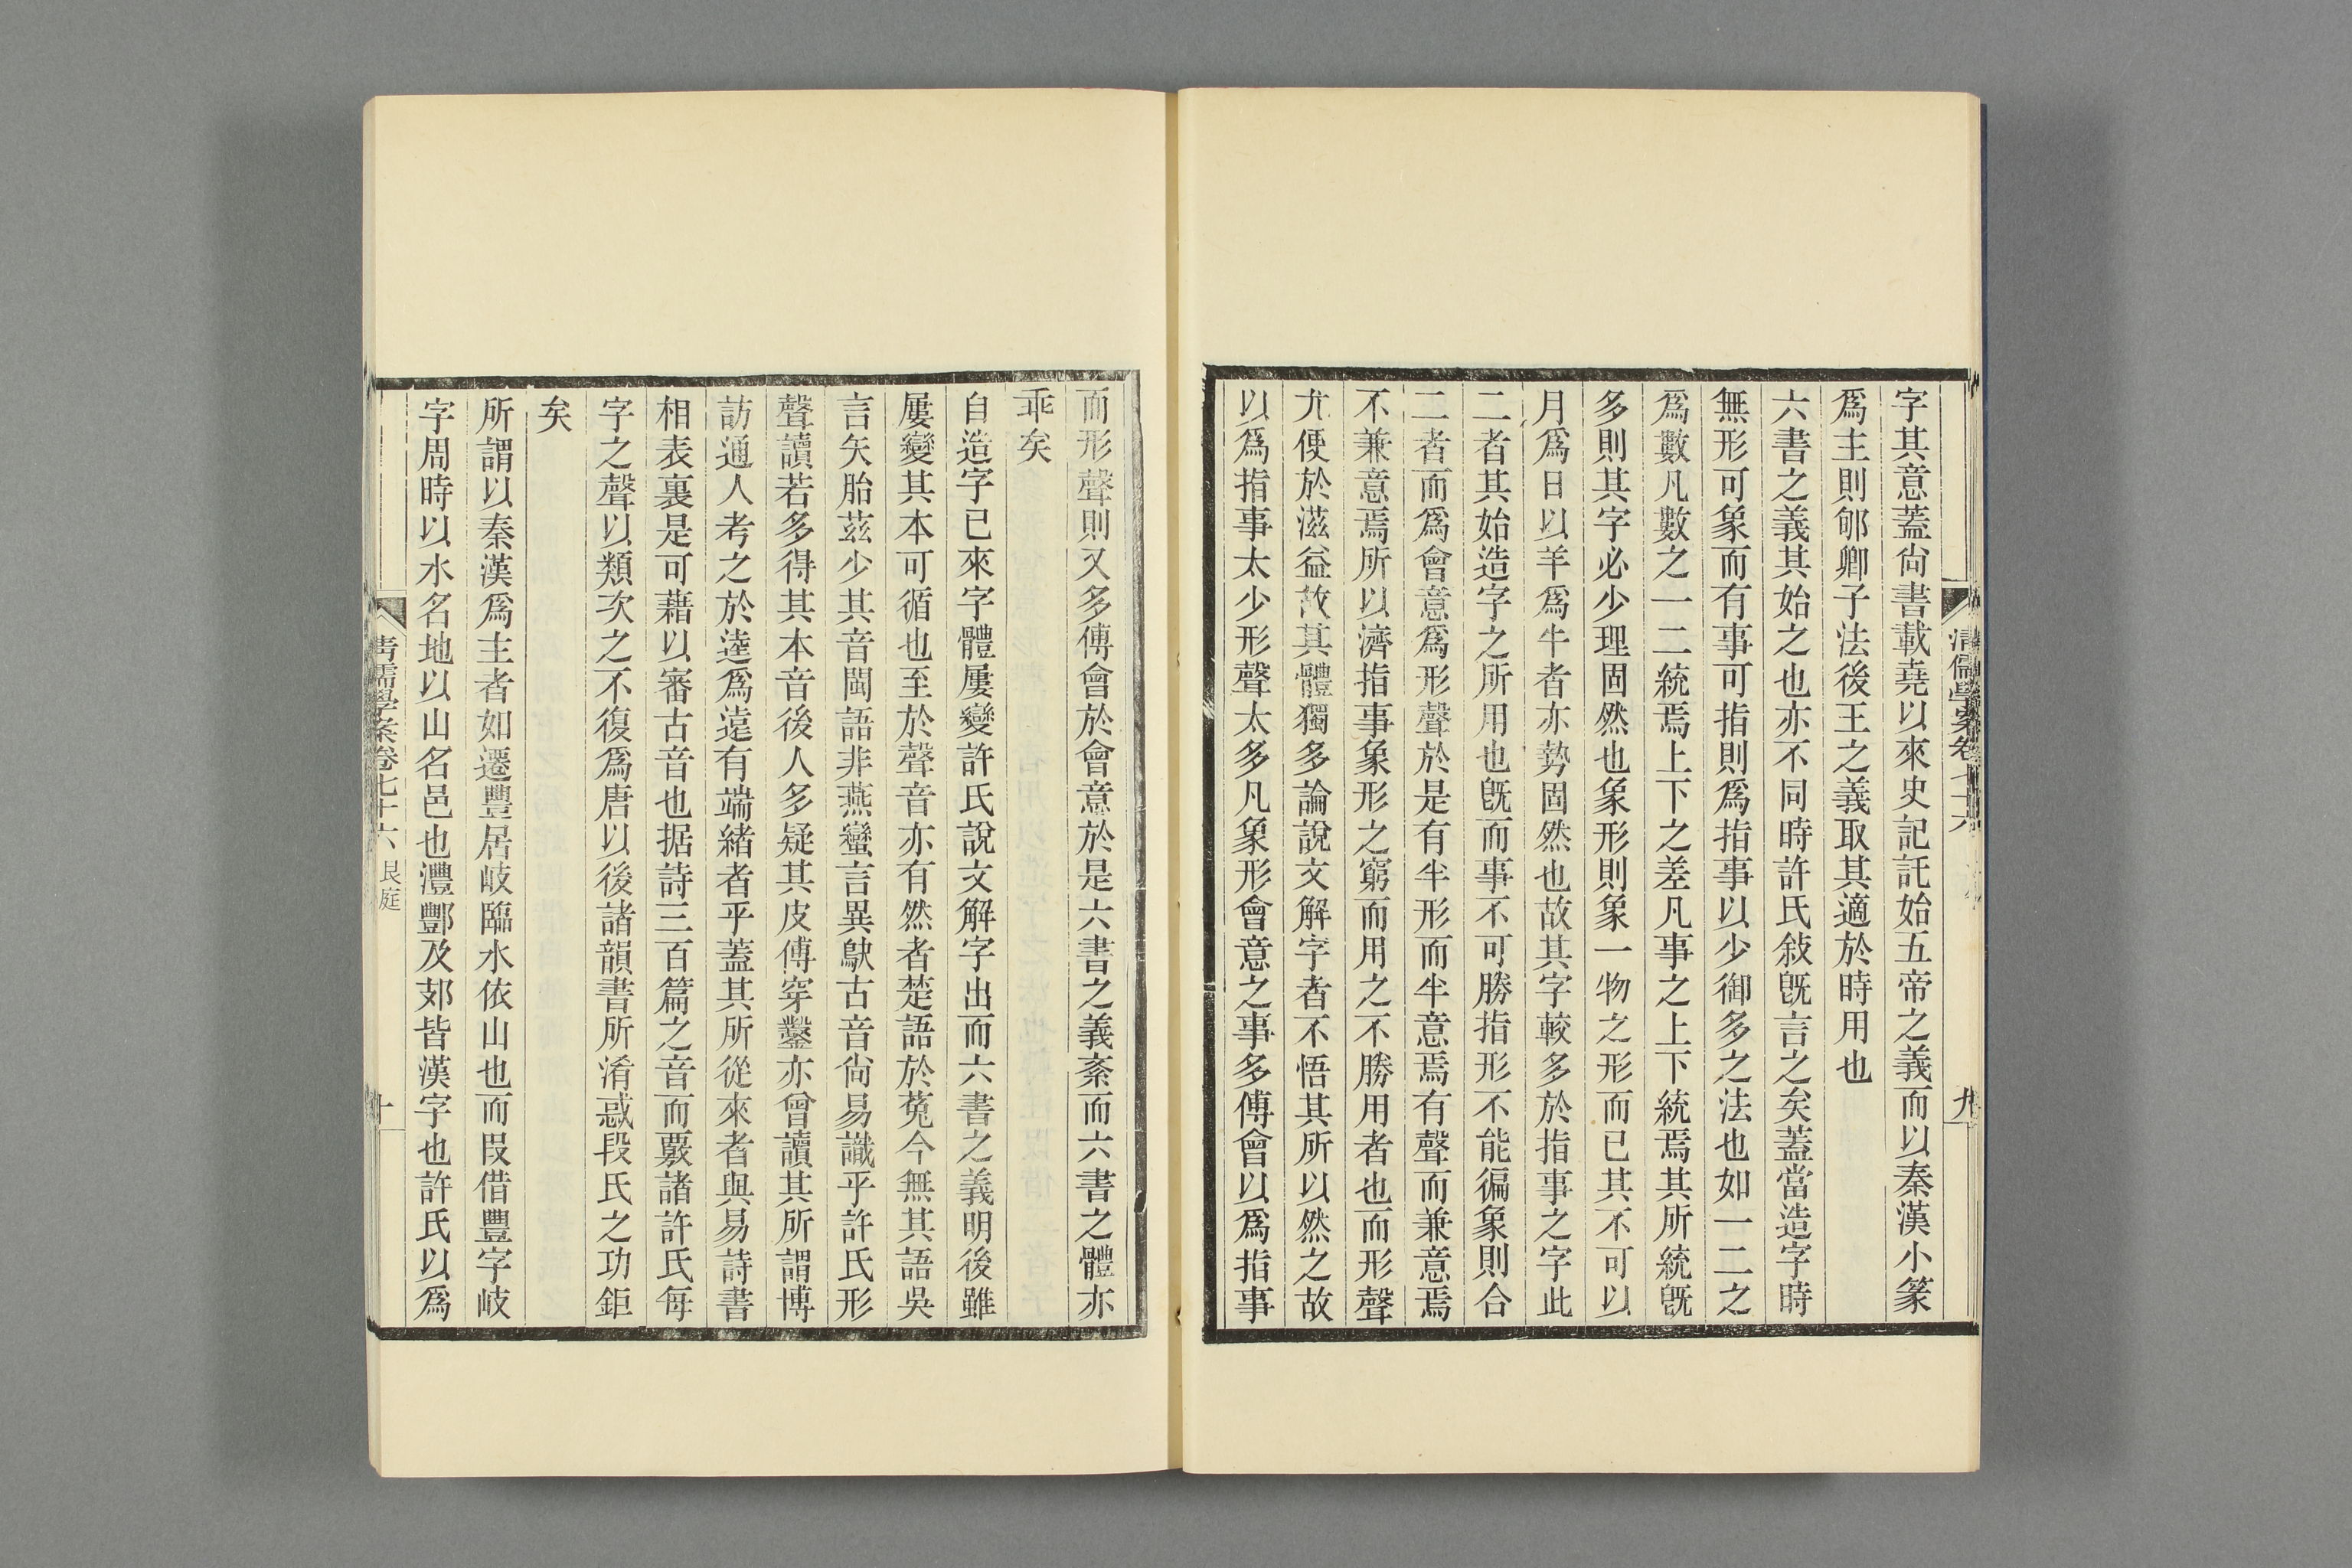 清儒學案卷七十六
九
字其意蓋尙書載堯以來史記託始五帝之義而以秦漢小篆
爲主則郇卿子法後王之義取其適於時用也
六書之義其始之也亦不同時許氏敍旣言之矣蓋當造字時
無形可象而有事可指則爲指事以少御多之法也如一二之
爲數凡數之一二統焉上下之差凡事之上下統焉其所統旣
多則其字必少理固然也象形則象一物之形而已其不可以
月爲日以羊爲牛者亦勢固然也故其字較多於指事之字此
二者其始造字之所用也旣而事不可勝指形不能徧象則合
二者而爲會意爲形聲於是有半形而半意焉有聲而兼意焉
不兼意焉所以濟指事象形之窮而用之不勝用者也而形聲
尤便於滋益故其體獨多論說文解字者不悟其所以然之故
以爲指事太少形聲太多凡象形會意之事多傅會以爲指事
而形聲則又多傅會於會意於是六書之義紊而六書之體亦
乖矣
自造字已來字體屢變許氏說文解字出而六書之義明後雖
屢變其本可循也至於聲音亦有然者楚語於菟今無其語吳
言矢胎茲少其音閩語非燕蠻言異鴃古音尙易識乎許氏形
聲讀若多得其本音後人多疑其皮傅穿鑿亦曾讀其所謂博
訪通人考之於逵爲逵有端緒者乎蓋其所從來者與易詩書
相表裏是可藉以審古音也据詩三百篇之音而覈諸許氏每
字之聲以類次之不復爲唐以後諸韻書所淆惑段氏之功鉅
矣
所謂以秦漢爲主者如遷豐居岐臨水依山也而叚借豐字岐
字周時以水名地以山名邑也灃酆及郊皆漢字也許氏以爲
清儒學案卷七十六 艮庭
十